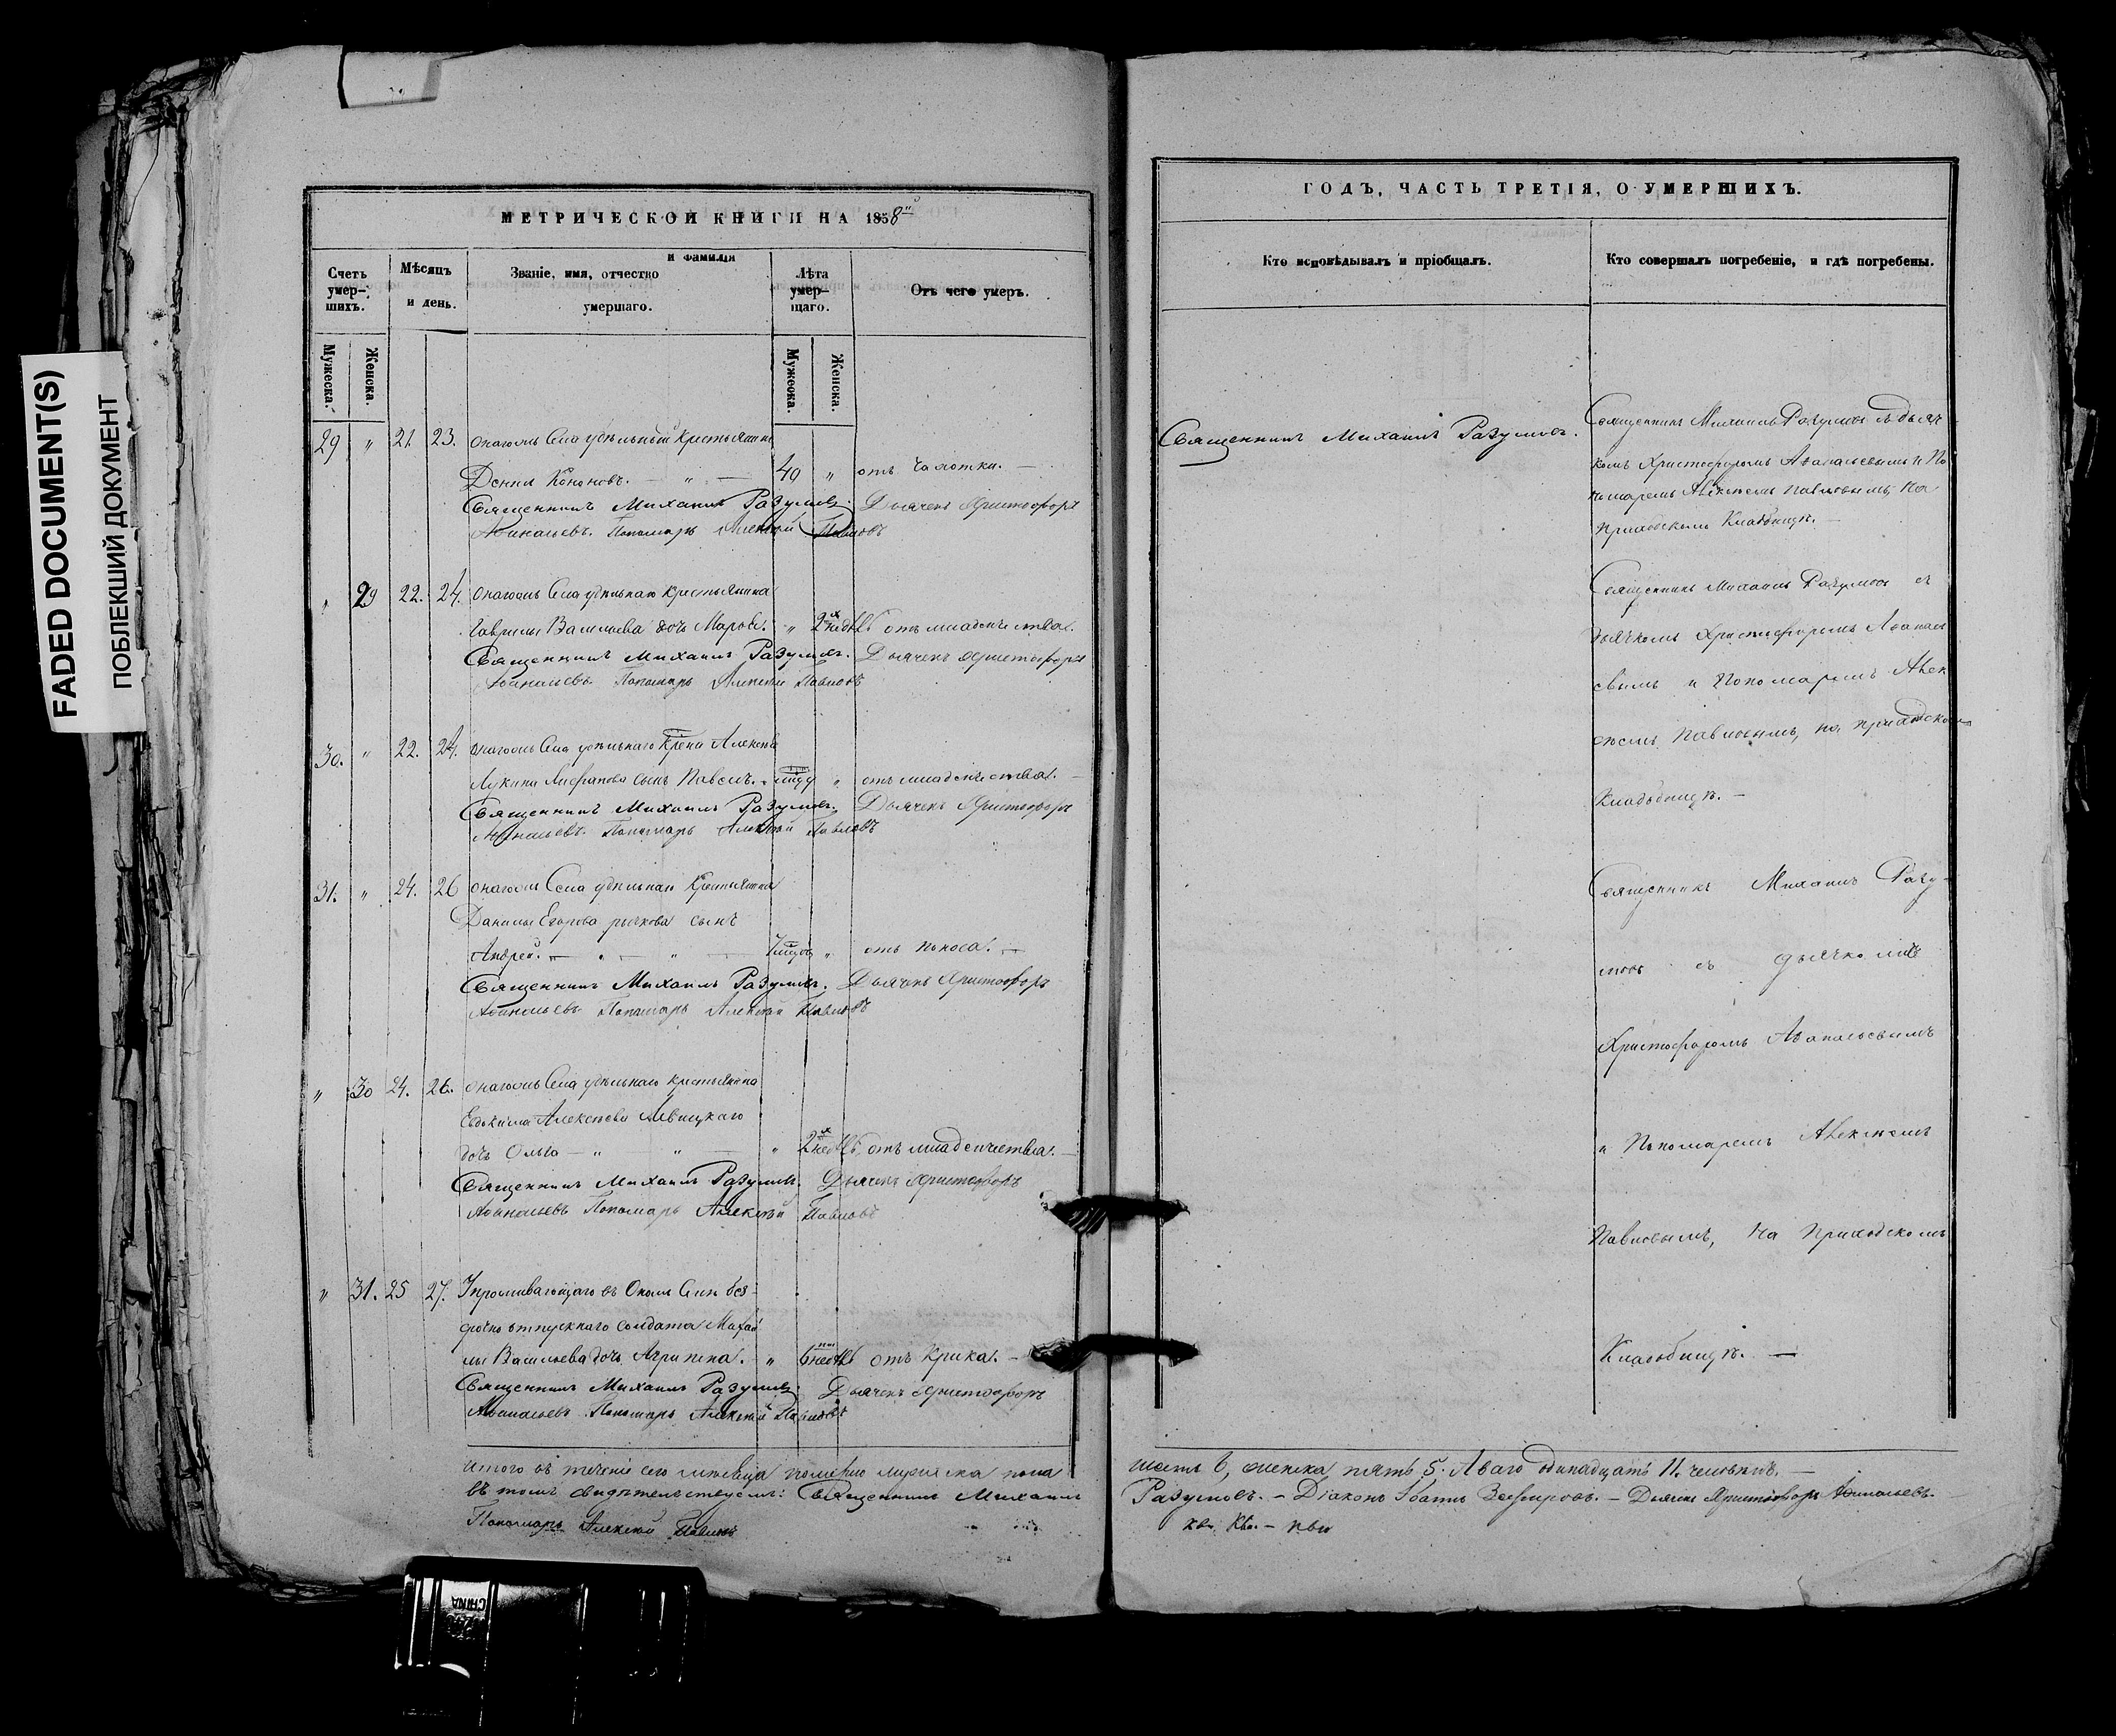 FADED DOCUMENT(S)
ПОБЛЕКШИЙ ДОКУМЕНТ
МЕТРИЧЕСКОЙ КНИГИ НА 1858
Счетъ умер-шихъ.
Мужеска.
Женска.
Мѣсяцъ и день.
Званіе, имя, отчество и фамилія умершаго.
Лѣта умер-шаго.
Мужеска.
Женска.
Отъ чего умеръ.
29 " 21. 23. Села удѣльный крестьянинъ
Кононовъ. — " — 49 " отъ чахотки. —
Священникъ Михаилъ Разумовъ. Дьячекъ Христофоръ
Аѳанасьевъ. Пономарь Алексѣй Павловъ
" 29 22. 24. Села удѣльнаго крестьянина
Гаврилы Васильева дочь " 2 недѣль отъ младенчества.
Священникъ Михаилъ Разумовъ. Дьячекъ Христофоръ
Аѳанасьевъ. Пономарь Алексѣй Павловъ
30. " 22. 24. Села удѣльнаго Алексѣя
Лукина сынъ Павелъ. " отъ младенчества. —
Священникъ Михаилъ Разумовъ. Дьячекъ Христофоръ
Аѳанасьевъ. Пономарь Алексѣй Павловъ
31. " 24. 26 Села удѣльнаго крестьянина
Данилы Егорова сынъ
Андрей. — " — " — " отъ поноса. —
Священникъ Михаилъ Разумовъ. Дьячекъ Христофоръ
Аѳанасьевъ Пономарь Алексѣй Павловъ
" 30 24. 26. Села удѣльнаго крестьянина
Евдокима Алексѣева
дочь Ольга — " " — " 2 недѣль отъ младенчества. —
Священникъ Михаилъ Разумовъ. Дьячекъ Христофоръ
Аѳанасьевъ Пономарь Алексѣй Павловъ
" 31. 25 27. въ Селѣ без-
срочно отпускнаго солдата
Васильева дочь Агрипена. " 6 недѣль отъ крика. —
Священникъ Михаилъ Разумовъ Дьячекъ Христофоръ
Аѳанасьевъ Пономарь Алексѣй Павловъ
Итого въ теченіе сего мѣсяца померло мужеска пола
въ томъ свидѣтельствуемъ: Священникъ Михаилъ
Пономарь Алексѣй Павловъ
ГОДЪ, ЧАСТЬ ТРЕТІЯ, О УМЕРШИХЪ.
Кто исповѣдывалъ и пріобщалъ.
Кто совершалъ погребеніе, и гдѣ погребены.
Священникъ Михаилъ Разумовъ.
Священникъ Михаилъ Разумовъ съ дьяч-
комъ Христофоромъ Аѳанасьевымъ и По-
номаремъ Алексѣемъ Павловымъ, на
приходскомъ Кладбищѣ. —
Священникъ Михаилъ Разумовъ съ
дьячкомъ Христофоромъ Аѳанась
евымъ и Пономаремъ Алек
сѣемъ Павловымъ, на приходскомъ
Кладбищѣ. —
Священникъ Михаилъ Разу-
мовъ съ дьячкомъ
Христофоромъ Аѳанасьевымъ
и Пономаремъ Алексѣемъ
Павловымъ, на приходскомъ
Кладбищѣ. —
шесть 6, женска пять 5. А всего одинадцать 11. человѣкъ. —
Разумовъ. — Діаконъ Іоаннъ Зефировъ. — Дьячекъ Христофоръ Аѳанасьевъ.
CHINA